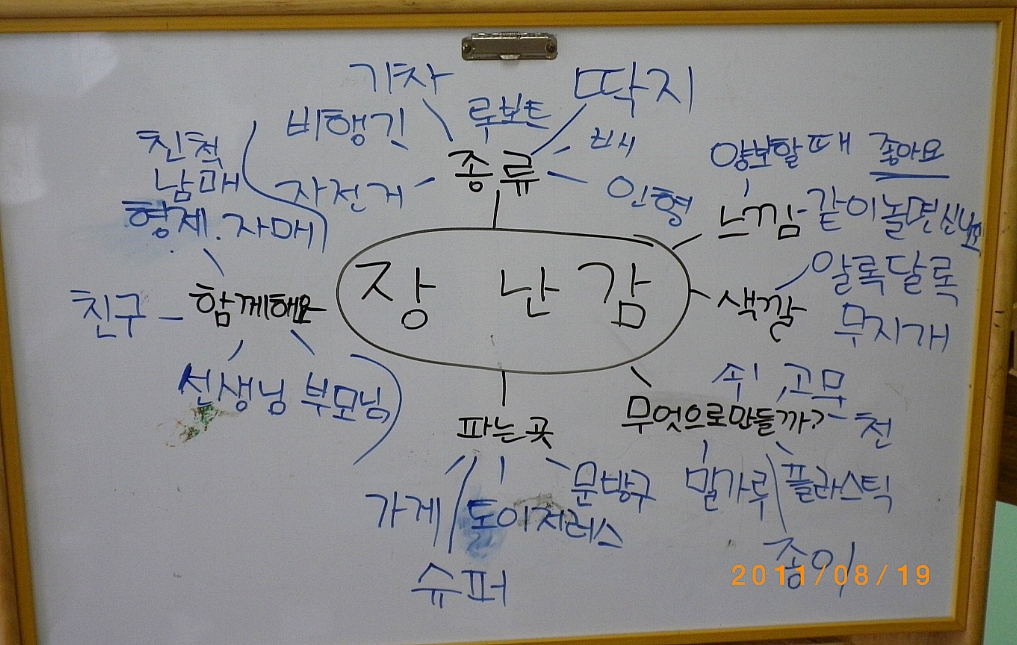 기차
로보트
딱지
비행기
택시
자전거
종류
인형
친척
남매
형제.자매
양보할때 좋아요
느낌-같이놀면신나요
장 난 감
알록달록
무지개
색깔
친구
함께해요
선생님
부모님
쇠
고무
파는곳
무엇으로만들까?
천
가게
토이저러스
문방구
밀가루
플라스틱
슈퍼
종이
2011/08/19